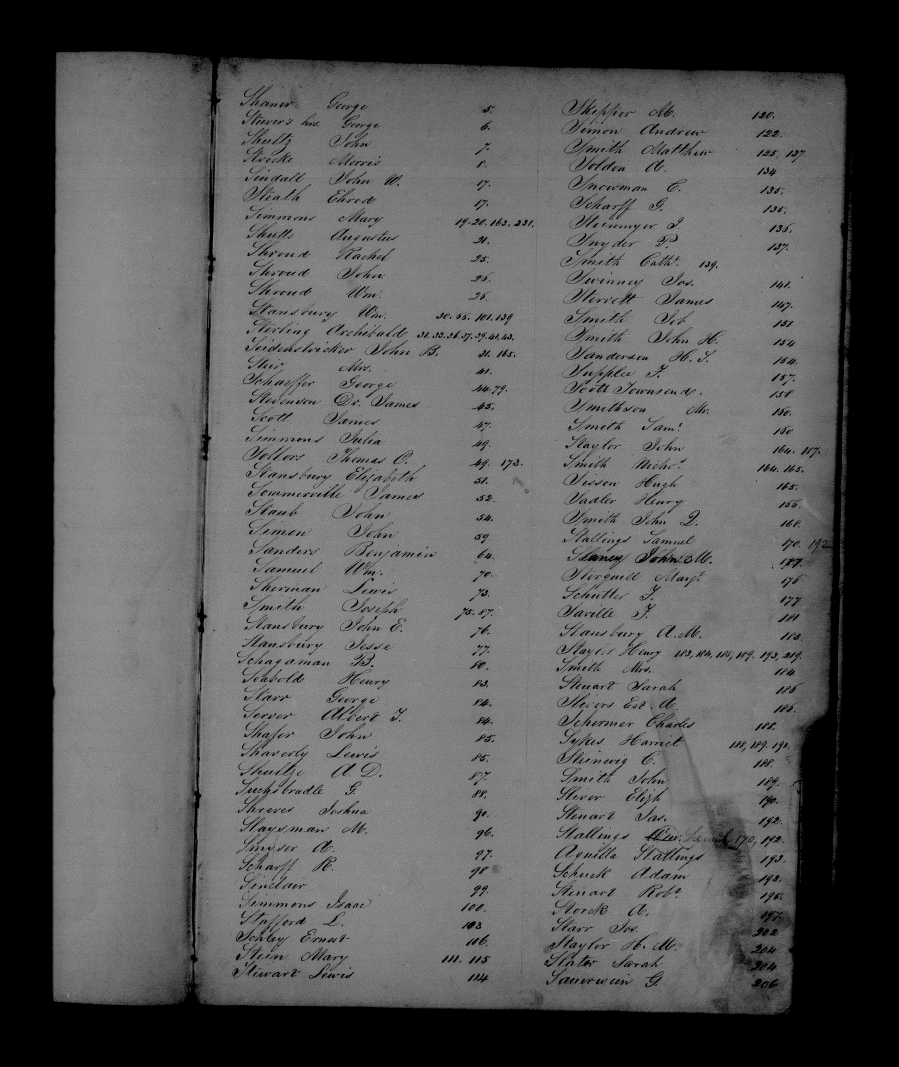 Shaner George 5.
Stevers hrs. George 6.
Shultz John 7.
Strecke Morris 8.
Sindall John W. 17.
Steath Ehrod 17.
Simmons Mary 19.20.163.231.
Shults Augustus 21.
Shroud Rachel 25.
Shroud John 25.
Shroud Wm. 25.
Stansbury Wm. 101.139
Sterling Archibald 31.33.36.37.39.41.43.
Seidenstricker John B. 31. 165.
Mrs. 41.
Schaeffer George 44.79.
Stevenson Dr. James 45.
Scott James 47.
Simmons Julia 49.
Sollers Thomas O. 49. 173.
Stansbury Elizabeth 51.
Sommerville James 52.
Staub John 54.
Simon John 59.
Sanders Benjamin 64.
Samuel Wm. 70.
Sherman Lewis 73.
Smith Joseph 75.87.
Stansbury John E. 76.
Stansbury Jesse 77.
Schagaman B. 80.
Seabold Henry 83.
Starr George 84.
Server Albert T. 84.
Shafer John 85.
Shaverly Lewis 85.
Shultze A. D. 87.
Suchsbradle G. 88.
Shreves Joshua 90.
Slaysman M. 96.
Smyser A. 97.
Scharff R. 98
Sinclair 99.
Simmons Isaac 100.
Stafford L. 103
Schley Ernest 106.
Stein Mary 111. 115
Stewart Lewis 114
Skipper M. 120.
Simon Andrew 122.
Smith Matthew 125, 137
Soldon A. 134
Snowman C. 135.
Scharff G. 135.
Steinmyer J. 135.
Snyder P. 137.
Smith Cath. 139.
Swinney Jos. 141.
Sterrett James 147.
Smith Job 151
Smith John H. 154
Sanderson H. S. 154.
Supplee T. 157.
Scott Townsend. 158
Smithson Mr. 150.
Smith Saml. 150
Staylor John 164. 187.
Smith Nichs. 164. 165.
Sisson Hugh 165.
Sadler Henry 166.
Smith John Q. 168.
Stallings Samuel 170. 192
John M. 187.
Margt. 176
Schutter T. 177
Saville T. 181
Stansbury A.M. 183.
Staylor Henry 183, 184, 185, 189. 193, 219.
Smith Mrs. 184
Steuart Sarah 186
Stevers Est A. 186.
Schermer Charles 188.
Sykes Harriet 188, 189. 191.
Steinwig C. 188.
Smith John 189.
Stever Elizh 190.
Steuart Jas. 192.
Stallings Wm. Samuel 170, 192.
Aquilla Stallings 193.
Schuck Adam 193.
Steuart Robt. 195.
Storck A. 197.
Starr Jos. 202
Staylor H. M. 204
Slater Sarah 204
Sauerwein G. 206